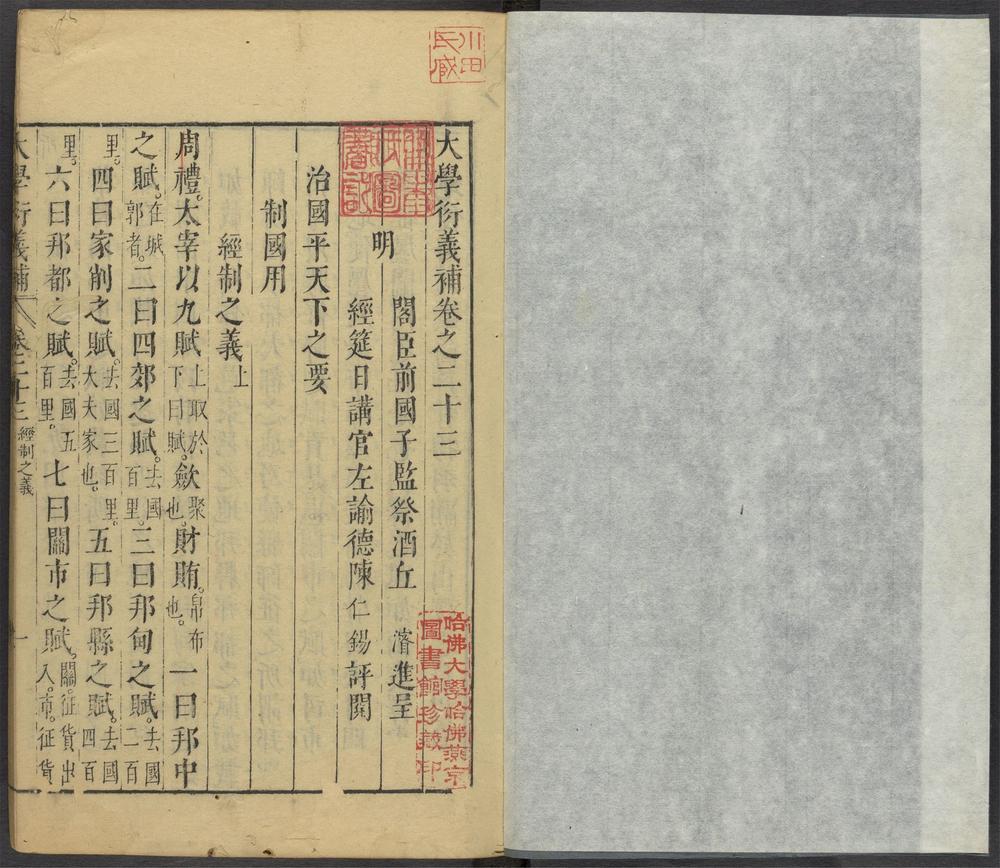 大學衍義補卷之二十三
明
閣臣前國子監祭酒丘濬進呈
經筵日講官左諭德陳仁錫評閱
治國平天下之要
制國用
經制之義上
周禮太宰以九賦上取於下曰賦歛聚也財賄帛布也一曰邦中
之賦在城郭者二曰四郊之賦去國百里三曰邦甸之賦去國二百
里四曰家削之賦去國三百里大夫家也五曰邦縣之賦去國四百
里六曰邦都之賦去國五百里七曰關市之賦關征貨出入市征貨
大學衍義補 卷二十三 經制之義 一
川田氏藏
哈佛大學哈佛燕京
圖書館珍藏印